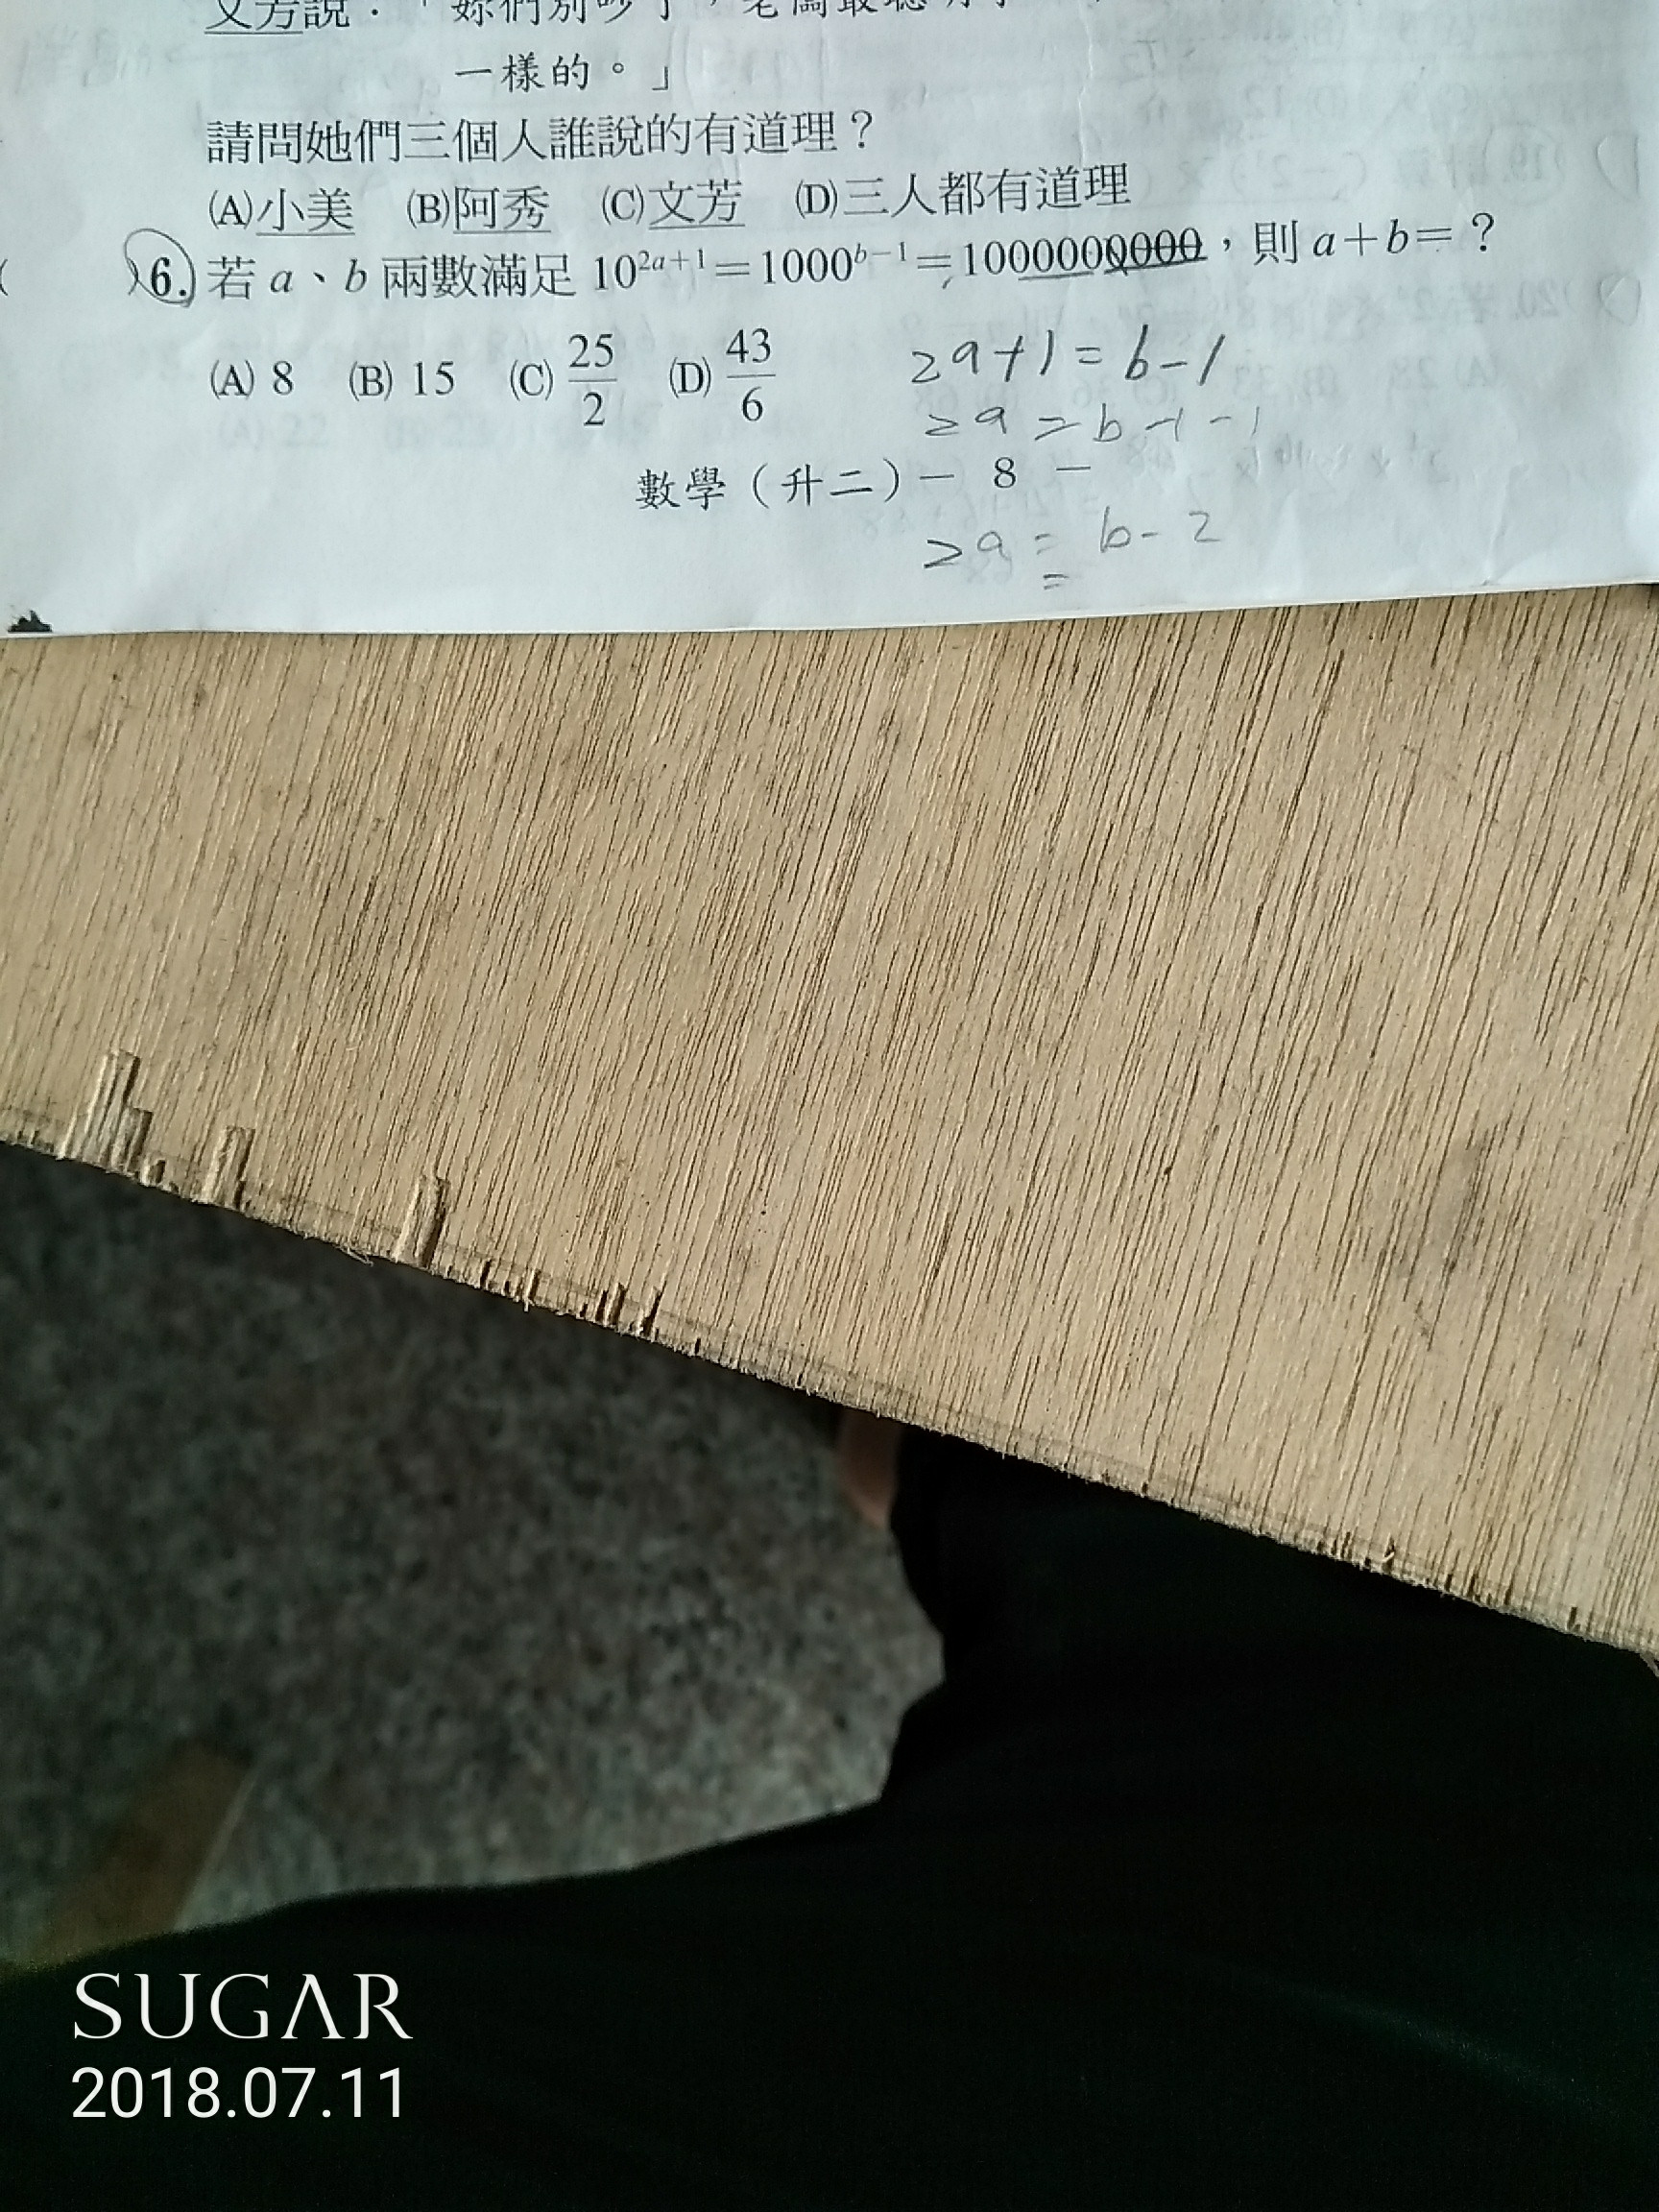 文芳說：「妳們別吵了，老闆最聰明
一樣的。」
請問她們三個人誰說的有道理？
(A)小美 (B)阿秀 (C)文芳 (D)三人都有道理
( )6. 若 a、b 兩數滿足 10²ᵃ⁺¹＝1000ᵇ⁻¹＝1000000000，則 a＋b＝？
(A) 8 (B) 15 (C) 25/2 (D) 43/6
2a+1=b-1
2a=b-1-1
數學（升二）－ 8 －
2a=b-2
=
SUGAR
2018.07.11